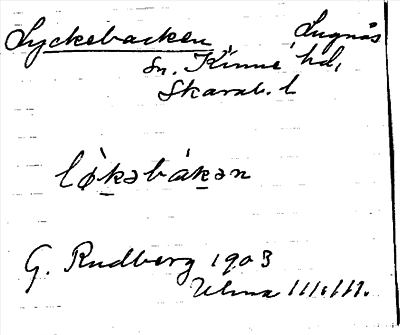 Lyckebacken Lugnås
sn. Kinne hd,
Skarab. l
lø̀kəbákən
G. Rudberg 1903